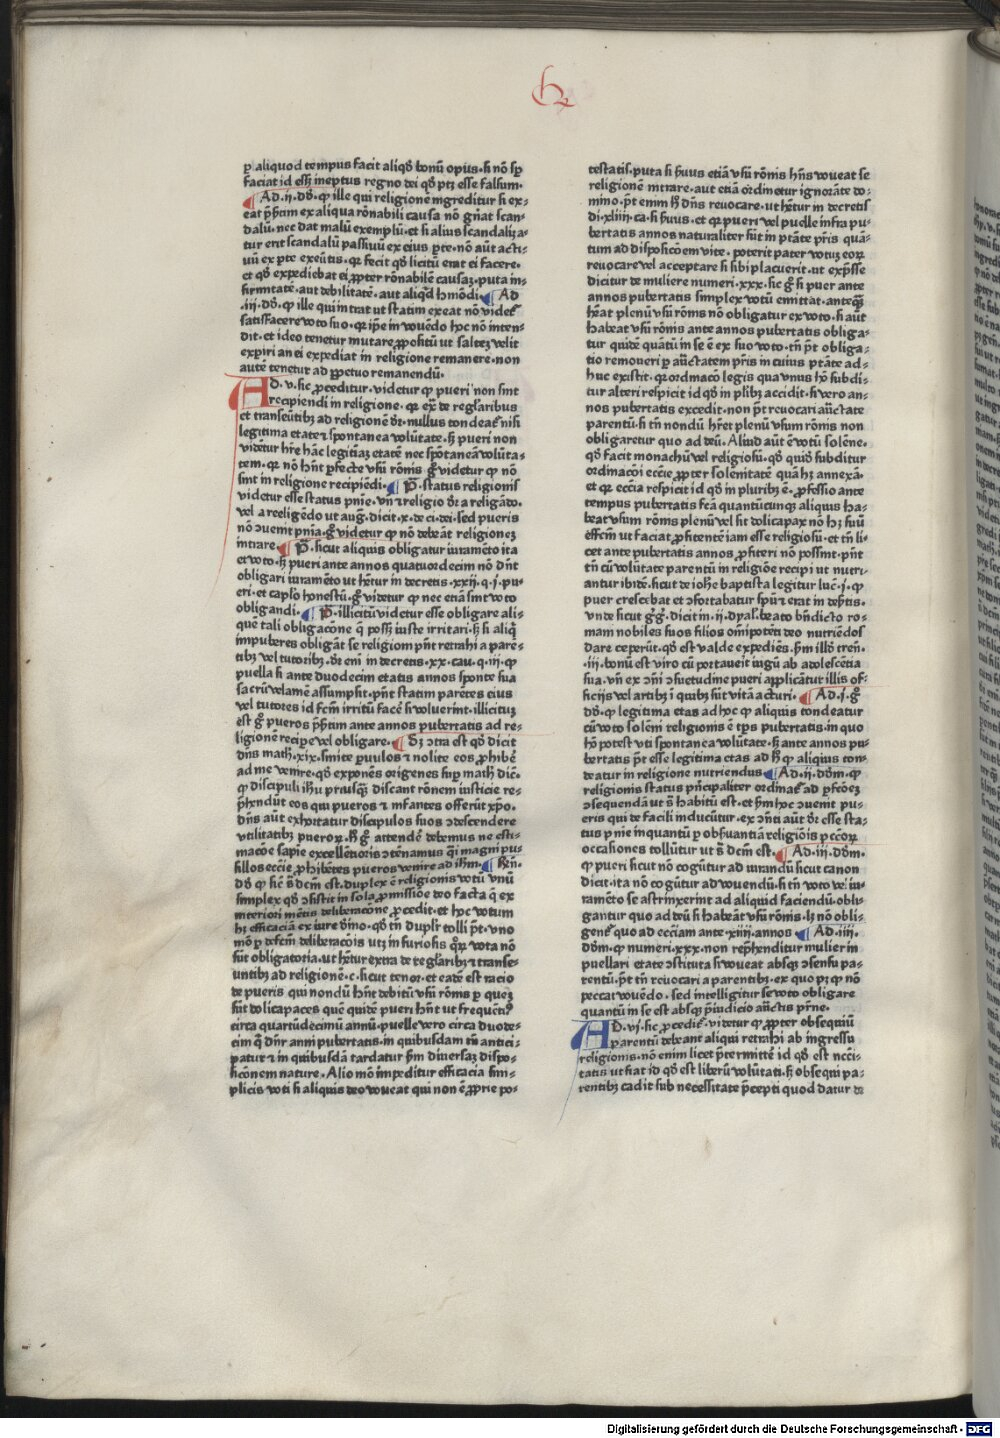 p̱ aliquod tempus facit aliqđ bonū opus. ſi nō ſꝑ
faciat id eſſꝫ ineptus regno dei qđ ptꝫ eſſe falſum.
Ad .ii. dđ. ꝙ ille qui religionē ingreditur ſi ex-
eat ꝓfitim ex aliqua rōnabili cauſa nō gn̄at ſcan-
dalū. nec dat malū exemplū. et ſi alius ſcandaliza-
tur erit ſcandalū paſſiuū ex eius ꝑte. nō aūt acti-
uū ex pte exeūtis. qꝛ fecit qđ licitū erat ei facere.
et qđ expediebat ei ꝓpter rōnabilē cauſaꝫ. puta in-
firmitatē. aut debilitatē. aut aliqd̄ hmōdi. Ad
.iii. dđ. ꝙ ille qui intrat ut ſtatim exeat nō videt᷑
ſatiſfacere voto ſuo. qꝛ ip̄e in vouēdo hoc nō inten-
dit. et ideo tenetur mutare ꝓpoſitū ut ſalteꝫ velit
exp̱iri an ei expediat in religione remanere. non
autē tenetur ad ꝑpetuo remanendū.
AD .v. ſic ꝓceditur. videtur ꝙ pueri non ſint
recipiendi in religione. qꝛ ext̄ de regl̄aribus
et tranſeūtibꝫ ad religionē dr̄. nullus tondeat᷑ niſi
legitima etate ⁊ ſpontanea volūtate. ſꝫ pueri non
videtur hr̄e hāc legitimā etatē nec ſpōtaneā volūta-
tem. qꝛ nō hn̄t ꝑfecte vſū rōnis. gͦ videtur ꝙ nō
ſint in religione recipiēdi. P̄. ſtatus religioniſ
videtur eſſe ſtatus pnīe. vn̄ ⁊ religio dr̄ a religādo.
vel a reeligēdo ut aug. dicit .x. de ci. dei. ſed pueris
nō ꝯuemt pnīa. gͦ videtur ꝙ nō debeāt religioneꝫ
intrare. P̄. ſicut aliquis obligatur iuramēto ita
et voto. ſꝫ pueri ante annos quatuordecim nō dn̄t
obligari iuramēto ut hētur in decretis .xxii. q. i. pu-
eri. et caplo honeſtū. gͦ videtur ꝙ nec etiā ſint voto
obligandi. P̄. illicitū videtur eſſe obligare ali-
quē tali obligacōne q̄ poſſꝫ iuſte irritari. ſꝫ ſi aliqͥ
impuberes obligāt ſe religioni pn̄t retrahi a paren-
tibꝫ vel tutoribꝫ. dr̄ eni in decretis .xx. cau. q. iii. ꝙ
puella ſi ante duodecim etatis annos ſponte ſua
ſacrū velamē aſſumpſit. pn̄t ſtatim parētes eius
vel tutores id fcm̄ irritū facē ſi voluerint. illicitū
eſt gͦ pueros ꝓfitim ante annos pubertatis ad re-
ligionē recipe vel obligare. Sꝫ ꝯtra eſt qđ dicit
dn̄s math̄ .xix. ſinite ꝑuulos ⁊ nolite eos ꝓhibē
ad me venire. qđ exponēs origenes ſuꝑ math̄ dic̄.
ꝙ diſcipuli ih̄u priuſqꝫ diſcant rōnem iuſticie re-
p̄hendūt eos qui pueros ⁊ infantes offerūt xp̄o.
dn̄s aūt exhortatur diſcipulos ſuos ꝯdeſcendere
vtilitatibꝫ pueroꝝ. hͦ gͦ attendē debemus ne eſti-
macōe ſapīe excellētioris ꝯtēnamus qͣſi magni pu-
ſillos eccīe ꝓhibētes pueros venire ad ih̄m. Rn̄.
dđ ꝙ ſic s̄ dcm̄ eſt. duplex ē religionis votū. vnū
ſimplex qđ ꝯſiſtit in ſola ꝓmiſſiōe deo facta q̄ ex
interiori mētis deliberacōne ꝓcedit. et hoc votum
hꝫ efficaciā ex iure diuīo. qđ tn̄ duplr̄ tolli p̄t. vno
mō p̱ defcm̄ deliberacōis utꝫ in furioſis qͦꝝ vota nō
ſūt obligatoria. ut hētur extra de regl̄aribꝫ ⁊ tranſe-
untibꝫ ad religionē. c. ſicut tenor. et eadē eſt racio
de pueris qui nondū hn̄t debitū vſū rōnis p̱ queꝫ
ſūt doli capaces quē quidē pueri hn̄t ut frequēti⁹
circa quartūdecimū annū. puelle vero circa duode-
cim q̄ dn̄r anni pubertatis. in quibuſdam tn̄ antici-
patur ⁊ in quibuſdā tardatur ſm̄ diuerſaꝫ diſpo-
ſicōnem nature. Alio mō impeditur efficacia ſim-
plicis voti ſi aliquis deo voueat qui non ē ꝓprie po-
teſtatis. puta ſi ſuus etiā vſū rōnis hn̄s voueat ſe
religionē intrare. aut etiā ordinetur ignorāte do-
mino. p̄t enim hͦ dn̄s reuocare. ut hētur in decretis
di. xliiii. ca. ſi ſuus. et qꝛ pueri vel puelle infra pu-
bertatis annos naturaliter ſūt in ptāte pr̄is quā-
tum ad diſpoſicōem vite. poterit pater votuꝫ eoꝝ
reuocare vel acceptare ſi ſibi placuerit. ut exp̄ſſe
dicitur de muliere numeri .xxx. ſic gͦ ſi puer ante
annos pubertatis ſimplex votū emittat. anteqꝫ
hēat plenū vſū rōnis nō obligatur ex voto. ſi aūt
habeat vſū rōnis ante annos pubertatis obliga-
tur quidē quātū in ſe ē ex ſuo voto. tn̄ p̄t obliga-
tio remoueri p̱ auctatem pr̄is in cuius ptāte ad-
huc exiſtit. qꝛ ordinacō legis qua vnus hō ſubdi-
tur alteri reſpicit id qđ in plibꝫ accidit. ſi vero an-
nos pubertatis excedit. non p̄t reuocari auctate
parentū. ſi tn̄ nondū hr̄et plenū vſum rōnis non
obligaretur quo ad deū. Aliud aūt ē votū ſolēne.
qđ facit monachū vel religioſū. qđ quidē ſubditur
ordinacōi eccīe ꝓpter ſolenitatē quā hꝫ annexā.
et qꝛ eccīa reſpicit id qđ in pluribꝫ ē. ꝓfeſſio ante
tempus pubertatis fcā quantūcunqꝫ aliquis ha-
beat vſum rōnis plenū vel ſit doli capax nō hꝫ ſuū
effcm̄ ut faciat ꝓfitentē iam eſſe religioſū. et tn̄ li-
cet ante pubertatis annos ꝓfiteri nō poſſint. pn̄t
tn̄ cū volūtate parentū in religiōe recipi ut nutri-
antur ibidē. ſicut de ioh̄e baptiſta legitur luc̄ .i. ꝙ
puer creſcebat et ꝯfortabatur ſpū ⁊ erat in deſtis.
vnde ſicut gͥg. dicit in .ii. dyal. beato bn̄dicto ro-
mani nobiles ſuos filios om̄ipotēti deo nutriēdoſ
dare ceperūt. qđ eſt valde expediēs. ſm̄ illđ tren̄.
.iii. bonū eſt viro cū portauerit iugū ab adoleſcētia
ſua. vn̄ ex ꝯni ꝯſuetudine pueri applicātur illis of-
ficijs vel artibꝫ i quibꝫ ſūt vitā acturi. Ad .i. gͦ
dđ. ꝙ legitima etas ad hoc ꝙ aliquis tondeatur
cū voto ſolēni religionis ē tp̄s pubertatis. in quo
hō poteſt vti ſpontanea volūtate. ſꝫ ante annos pu-
bertatis p̄t eſſe legitima etas ad hͦ ꝙ aliquius ton-
deatur in religione nutriendus. Ad .ii. dđm. ꝙ
religionis ſtatus pn̄cipaliter ordinat᷑ ad ꝑfcōeꝫ
ꝯſequendā ut s̄ habitū eſt. et ſm̄ hoc ꝯuenit pu-
eris qui de facili inducūtur. ex ꝯn̄ti aūt dr̄ eſſe ſta-
tus pnīe inquantū p̱ obſuantiā religiōis pccōꝝ
occaſiones tollūtur ut s̄ dcm̄ eſt. Ad .iii. dđm.
ꝙ pueri ſicut nō cogūtur ad iurandū ſicut canon
dicit. ita nō cogūtur ad vouendū. ſi tn̄ voto vel iu-
ramēto ſe aſtrinxerint ad aliquid faciendū. obli-
gantur quo ad deū ſi habeāt vſū rōnis. lꝫ nō obli-
gent᷑ quo ad eccīam ante .xiiii. annos Ad .iiii.
dđm. ꝙ numeri .xxx. non rep̄henditur mulier in
puellari etate ꝯſtituta ſi voueat abſqꝫ ꝯſenſu pa-
rentū. p̄t tn̄ reuocari a parentibꝫ. ex quo pꝫ ꝙ nō
peccat vouēdo. ſed intelligitur ſe voto obligare
quantū in ſe eſt abſqꝫ p̄iudicio auctis pr̄ne.
AD .vi. ſic ꝓcedit᷑. videtur ꝙ ꝓpter obſequiū
parentū debeant aliqui retrahi ab ingreſſu
religionis. nō enim licet p̄termittē id qđ eſt ncc̄i-
tatis ut fiat id qđ eſt liberū volūtati. ſꝫ obſequi pa-
rentibꝫ cadit ſub neceſſitate p̄cepti quod datur de
Digitalisierung gefördert durch die Deutsche Forschungsgemeinschaft - DFG